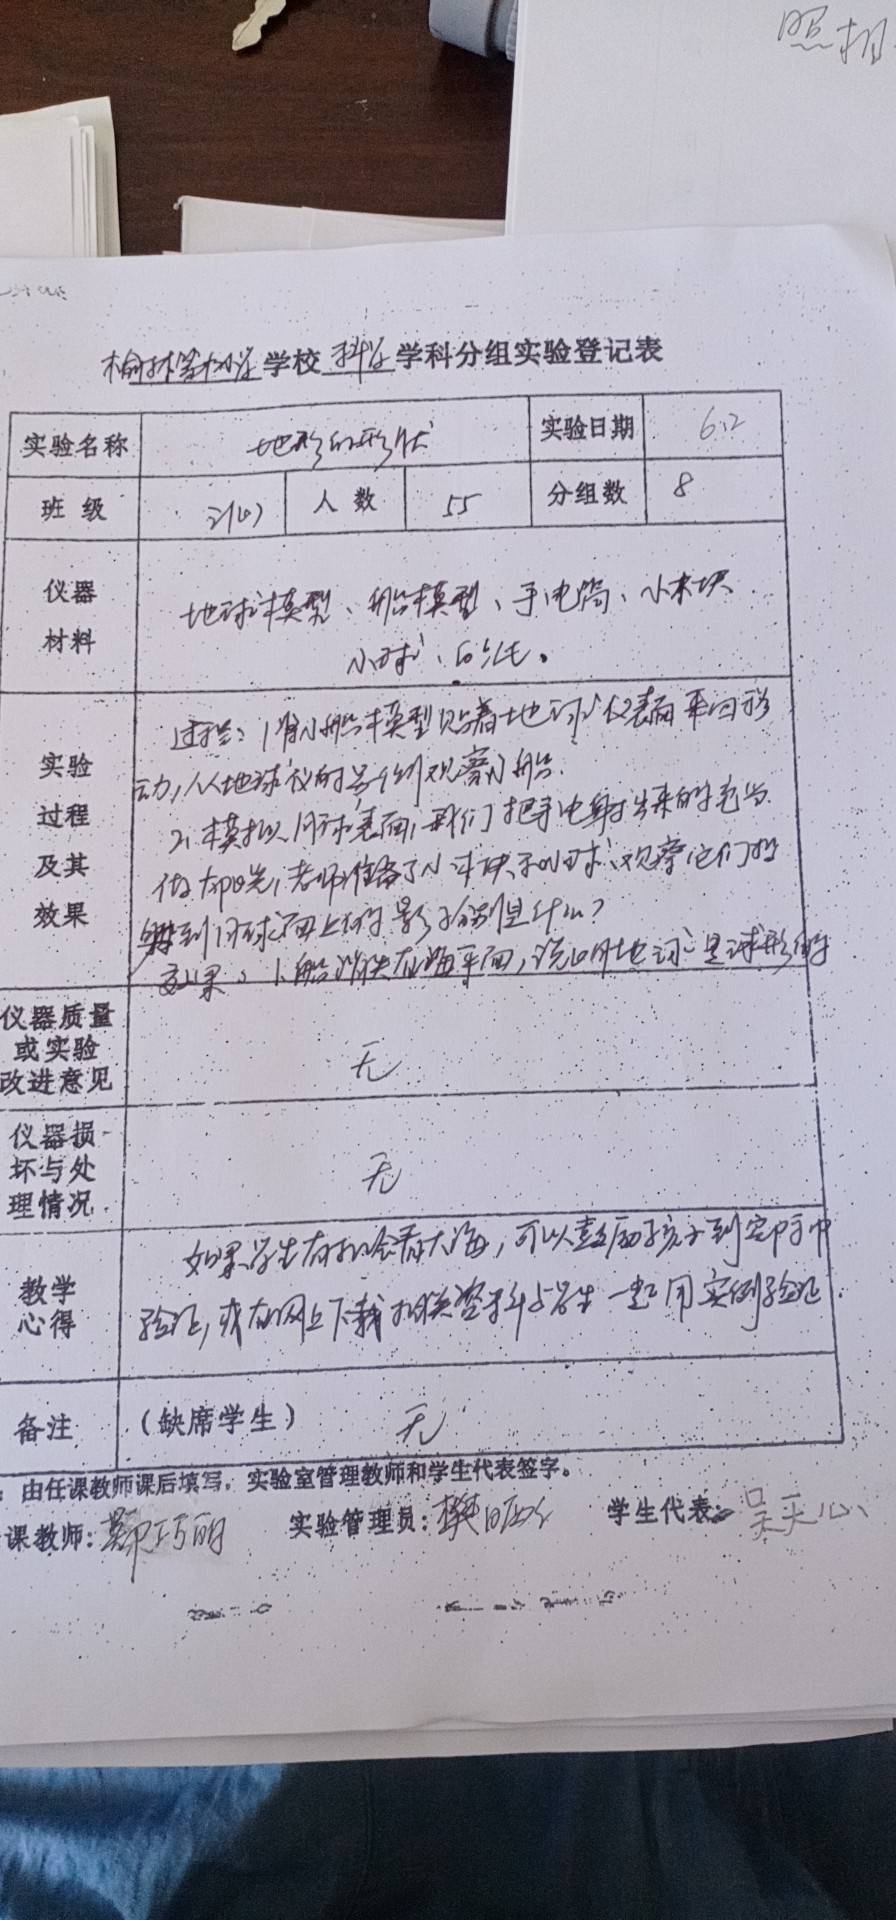 照相
学校 科学 学科分组实验登记表
实验名称 地形的形状 实验日期 6.12
班级 人数 55 分组数 8
仪器
材料
地球模型、船模型、手电筒、小木块
小球、
实验
过程
及其
效果
过程：1.将小船模型贴着地球仪表面来回移
动，从地球仪的另一侧观察小船.
2.模拟月球表面，我们把手电射出来的光当
做太阳光，老师准备了小木块和小球，观察它们投
射到月球面上的影子分别是什么？
效果：1.船消失在海平面，说明地球是球形的
仪器质量
或实验
改进意见
无
仪器损
坏与处
理情况
无
教学
心得
如果学生有机会看大海，可以鼓励孩子到实际中
验证，或在网上下载相关资料与学生一起用实例验证
备注 (缺席学生) 无
：由任课教师课后填写，实验室管理教师和学生代表签字。
课教师： 实验管理员： 学生代表：吴天心